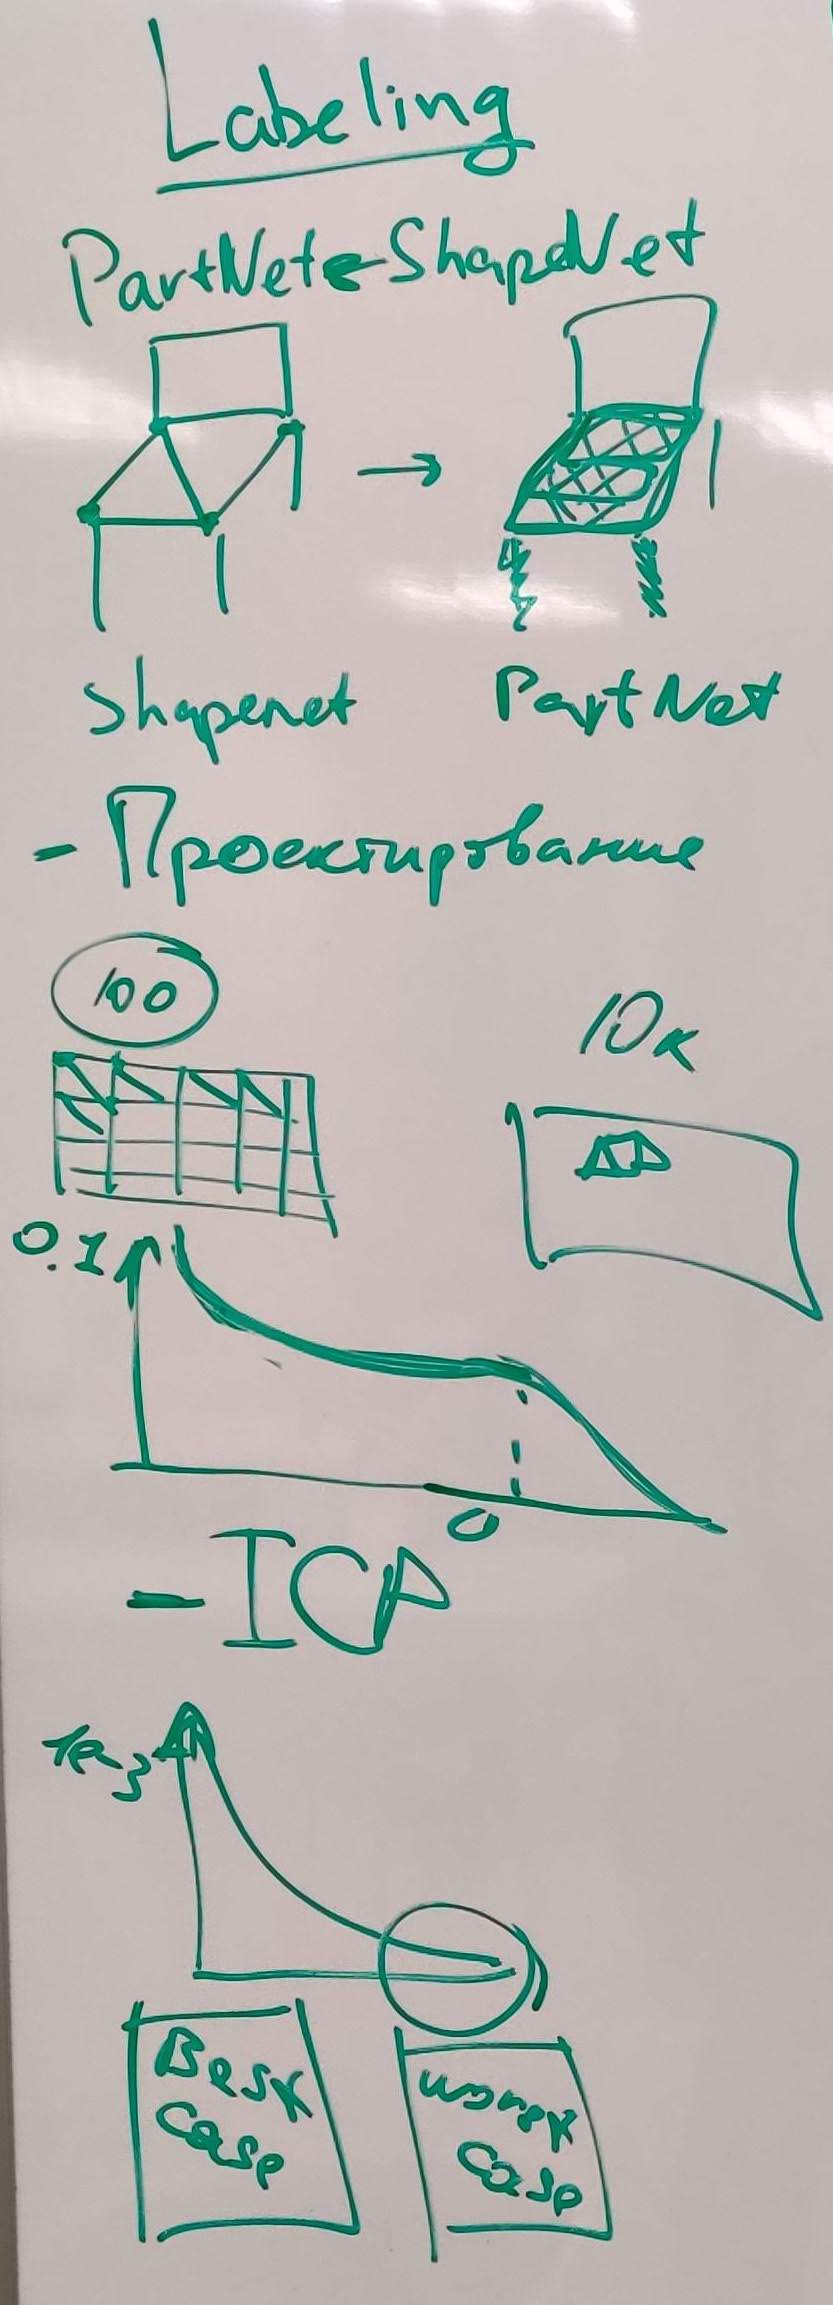 Labeling
PartNet ← ShapeNet
Shapenet PartNet
- Проектирование
100
10к
0.1
0
- ICP
Best case
worst case